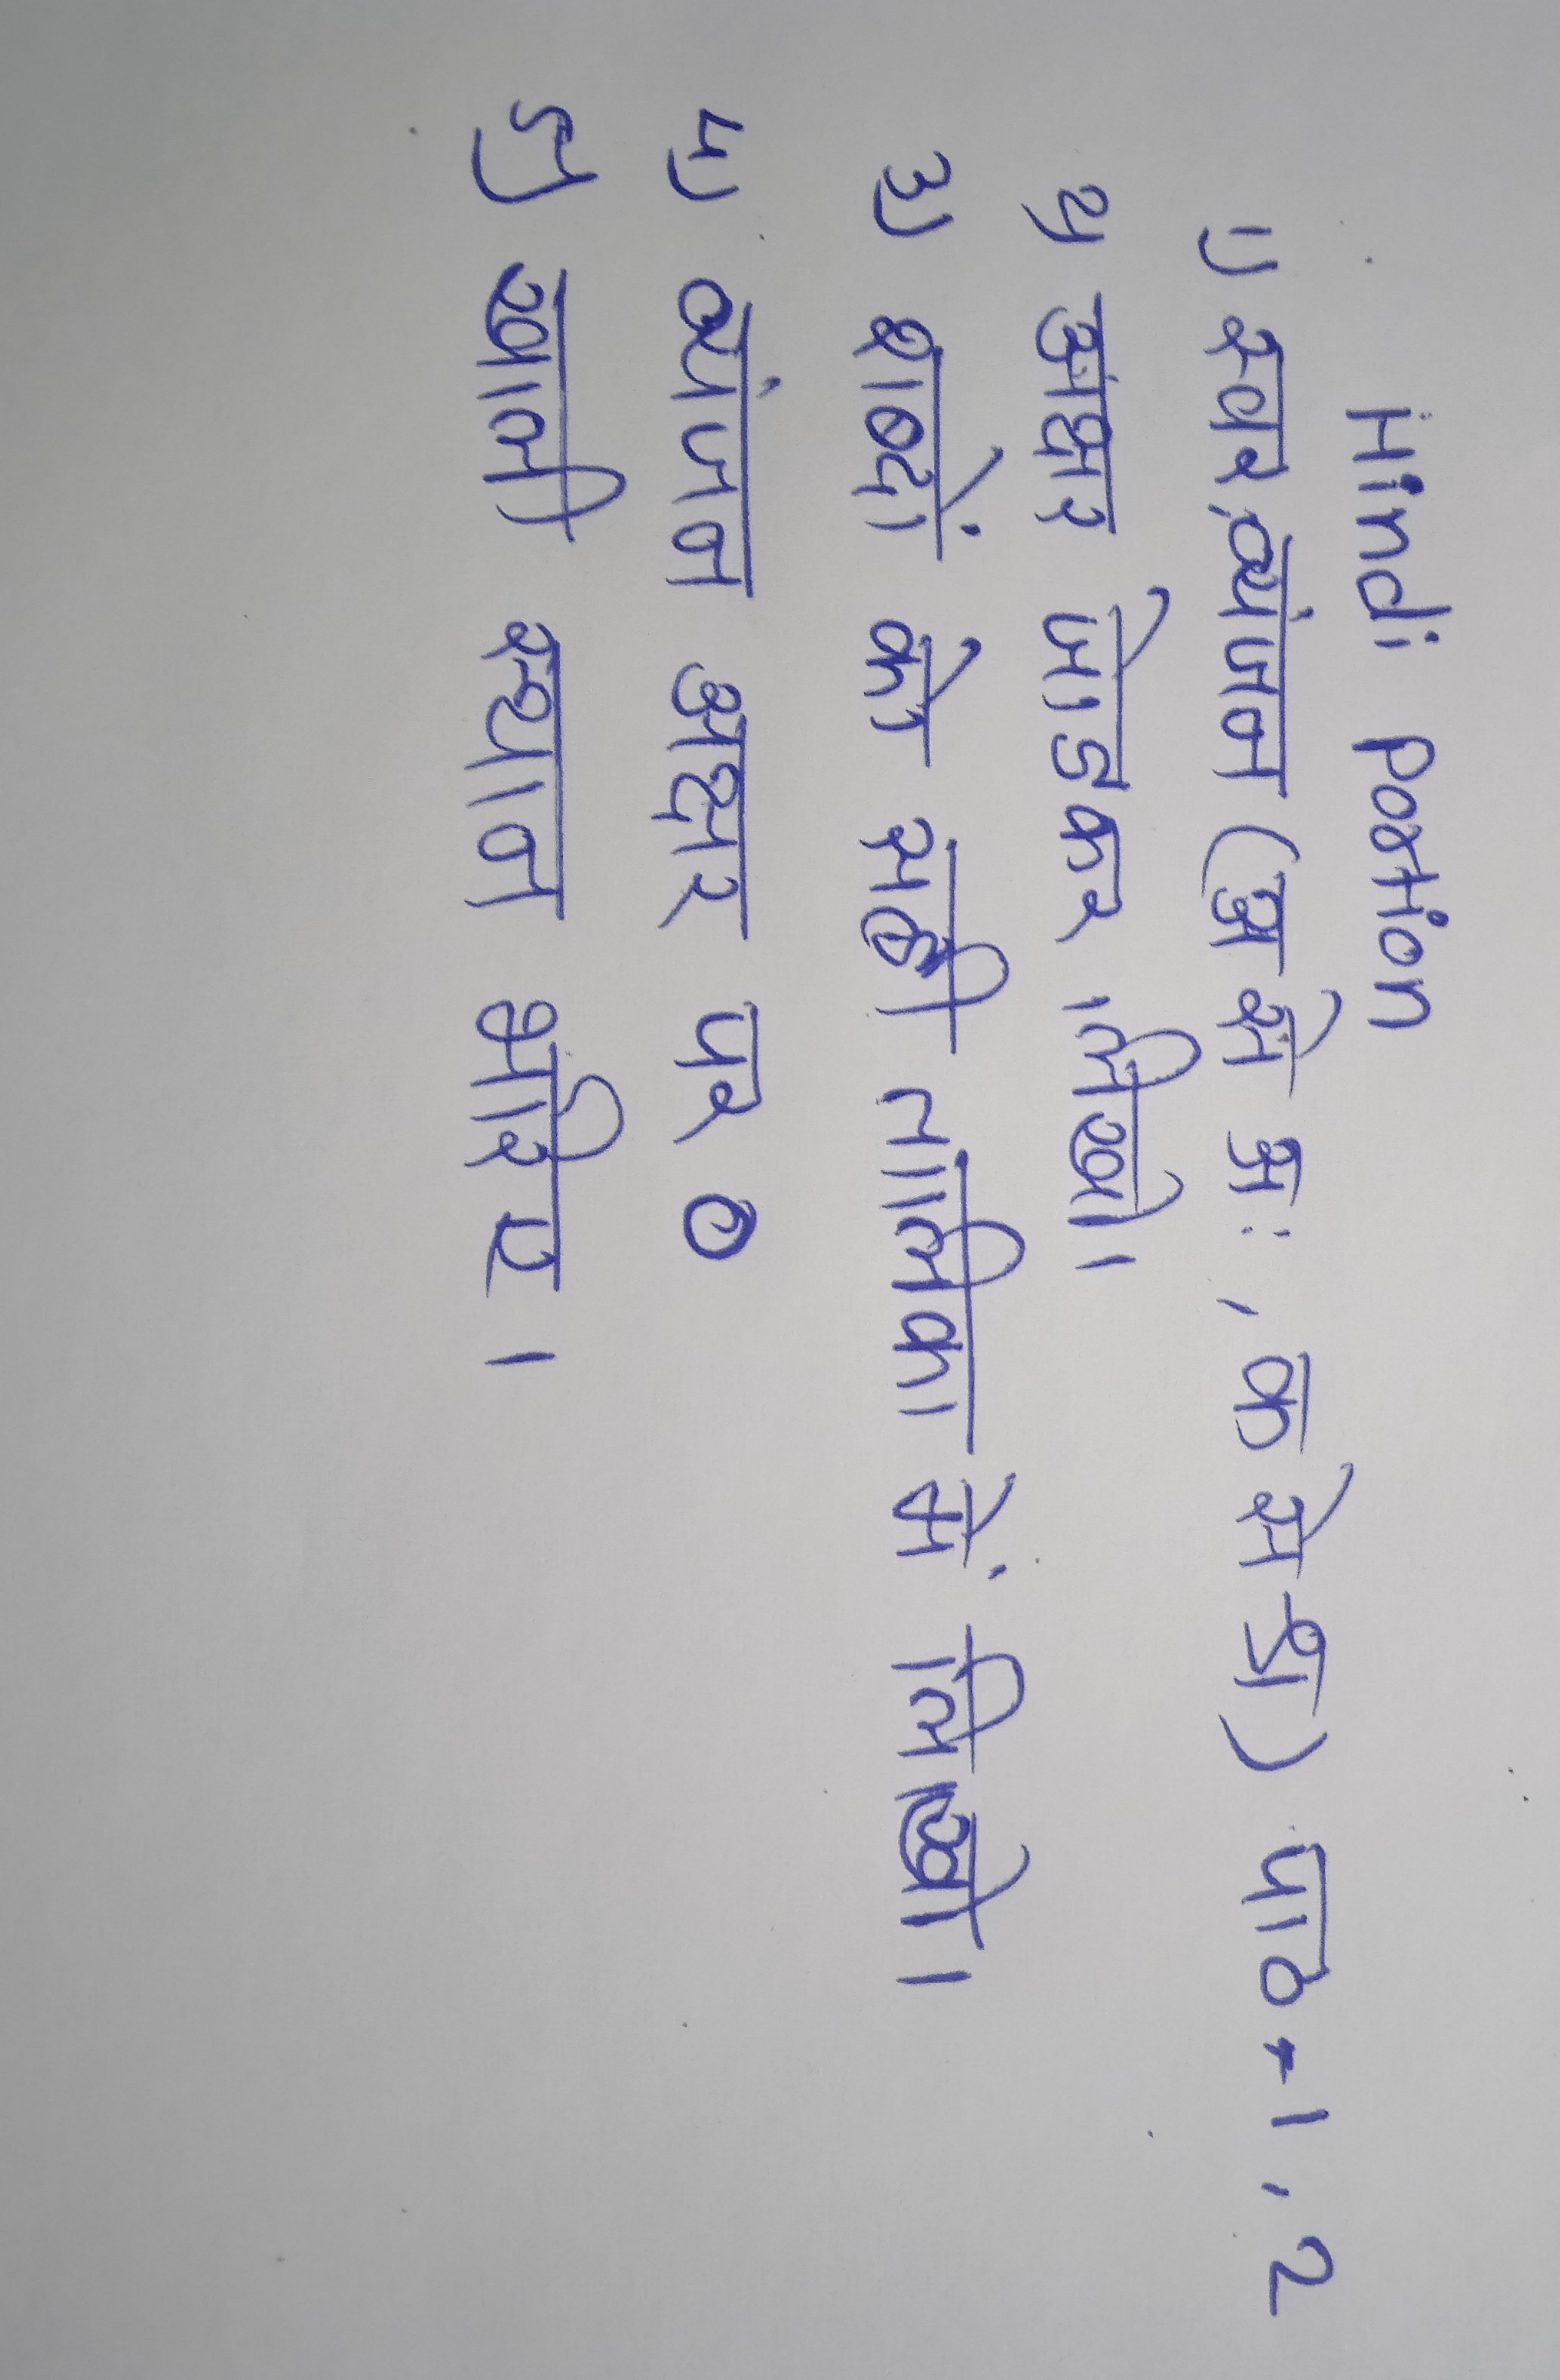 Hindi portion
1) स्वर, व्यंजन (अ से अः, क से श्र) पाठ-1, 2
2) अक्षर जोडकर लिखो।
3) शब्दों को सही तालिका में लिखो।
4) व्यंजन अक्षर पर O
5) खाली स्थान भरिए।